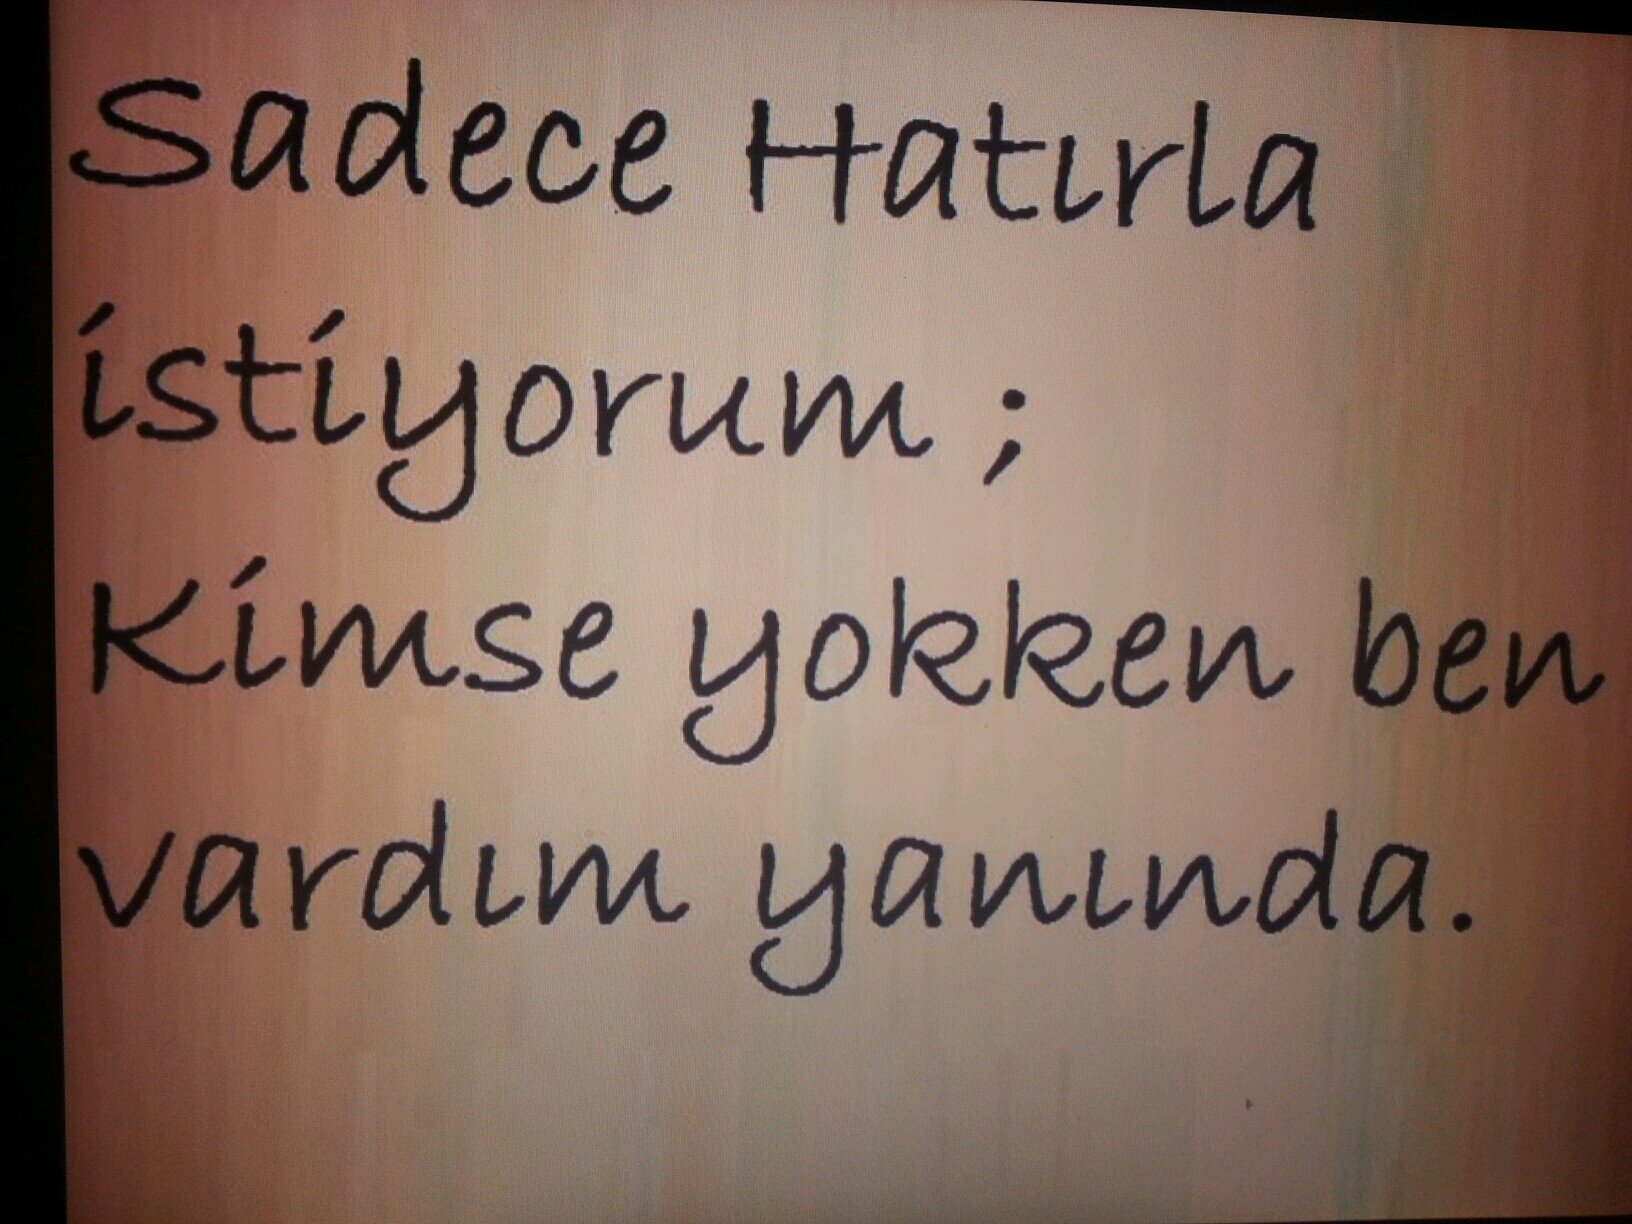 Sadece Hatırla
istiyorum ;
Kimse yokken ben
vardım yanında.